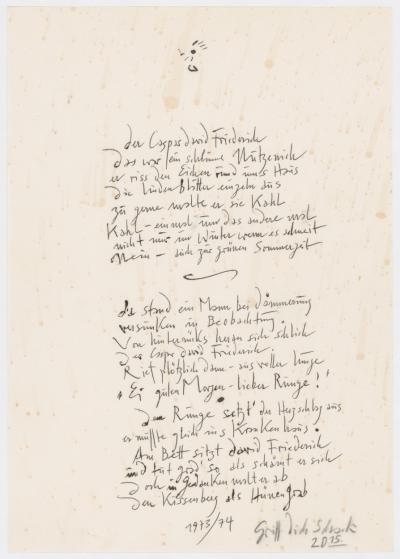 der Caspar david Friederich
das war ein schlimme Nützerich
er riss den Eichen rund ums Haus
die Lindenblätter einzeln aus
zu gerne malte er sie Kahl
Kahl - einmal nur das andere mal
nicht nur im Winter wenn es schneit
Nein - auch zur grünen Sommerzeit
da stand ein Mann bei Dämmerung
versunken in Beobachtung.
Von hinterrücks heran sich schlich
Der Caspar david Friederich.
Rief plötzlich dann - aus voller Lunge
"Ei guten Morgen - lieber Runge!"
Dem Runge setzt der Herzschlag aus
er müsste gleich ins Krankenhaus.
Am Bett sitzt david Friederich
und tut grad so als schämt er sich
doch in Gedanken malt er ab
den Kissenberg als Hünengrab
1973/74
2015.